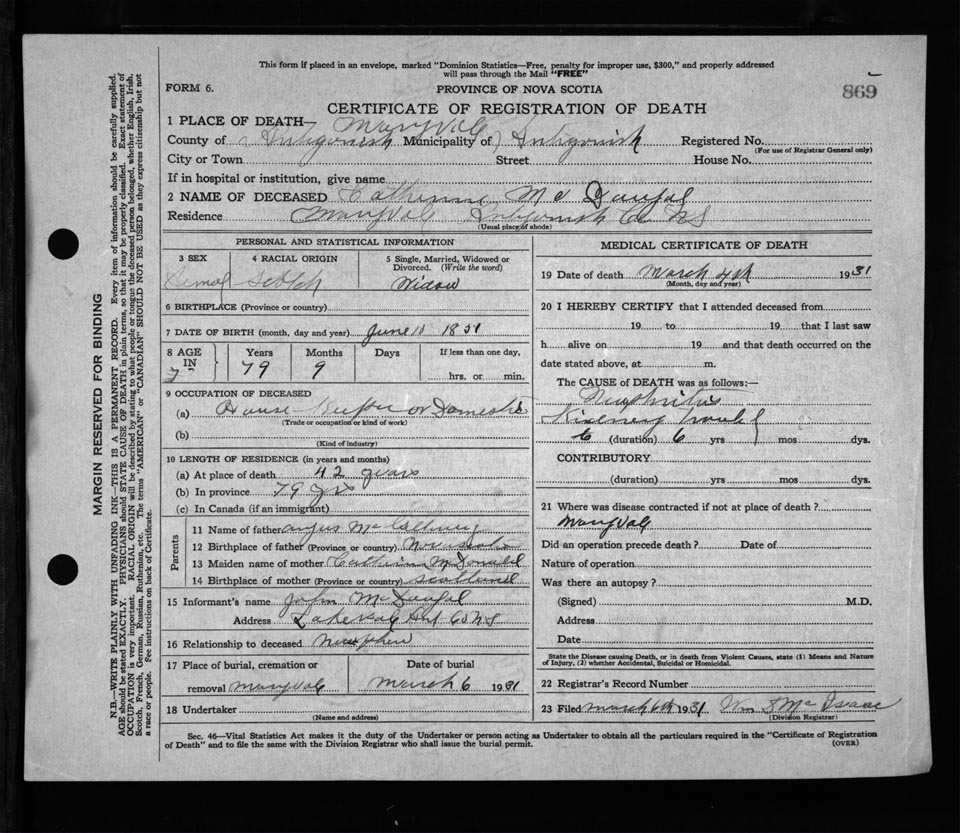 This form if placed in an envelope, marked "Dominion Statistics—Free, penalty for improper use, $300," and properly addressed
will pass through the Mail "FREE"
FORM 6.
PROVINCE OF NOVA SCOTIA
869
CERTIFICATE OF REGISTRATION OF DEATH
1 PLACE OF DEATH— Maryvale
County of Antigonish Municipality of Antigonish Registered No.
(For use of Registrar General only)
City or Town Street House No.
If in hospital or institution, give name
2 NAME OF DECEASED Catherine Mc Dougal
Residence Maryvale Antigonish Co NS
(Usual place of abode)
PERSONAL AND STATISTICAL INFORMATION
3 SEX 4 RACIAL ORIGIN 5 Single, Married, Widowed or
Divorced. (Write the word)
Female Scotch Widow
6 BIRTHPLACE (Province or country)
7 DATE OF BIRTH (month, day and year) June 1851
8 AGE IN Years Months Days If less than one day,
79 9 hrs. or min.
9 OCCUPATION OF DECEASED
(a) House Keeper or Domestic
(Trade or occupation or kind of work)
(b)
(Kind of industry)
10 LENGTH OF RESIDENCE (in years and months)
(a) At place of death 42 years
(b) In province 79 yrs
(c) In Canada (if an immigrant)
Parents
11 Name of father Angus Mc
12 Birthplace of father (Province or country) Nova Scotia
13 Maiden name of mother Catherine McDonald
14 Birthplace of mother (Province or country) Scotland
15 Informant's name John McDougal
Address Lakevale Ant Co NS
16 Relationship to deceased nephew
17 Place of burial, cremation or Date of burial
removal Maryvale March 6 1931
18 Undertaker
(Name and address)
MEDICAL CERTIFICATE OF DEATH
19 Date of death March 4th 1931
(Month, day and year)
20 I HEREBY CERTIFY that I attended deceased from
19 to 19 that I last saw
h alive on 19 and that death occurred on the
date stated above, at m.
The CAUSE OF DEATH was as follows:—
Nephritis
Kidney trouble
6 (duration) 6 yrs mos dys.
CONTRIBUTORY
(duration) yrs mos dys.
21 Where was disease contracted if not at place of death?
Maryvale
Did an operation precede death? Date of
Nature of operation
Was there an autopsy?
(Signed) M.D.
Address
Date
State the Disease causing Death, or in death from Violent Causes, state (1) Means and Nature
of Injury, (2) whether Accidental, Suicidal or Homicidal.
22 Registrar's Record Number
23 Filed March 6th 1931 Wm McIsaac
(Division Registrar)
Sec. 46—Vital Statistics Act makes it the duty of the Undertaker or person acting as Undertaker to obtain all the particulars required in the "Certificate of Registration
of Death" and to file the same with the Division Registrar who shall issue the burial permit. (OVER)
MARGIN RESERVED FOR BINDING
N.B.—WRITE PLAINLY WITH UNFADING INK—THIS IS A PERMANENT RECORD. Every item of information should be carefully supplied.
AGE should be stated EXACTLY. PHYSICIANS should STATE CAUSE OF DEATH in plain terms, so that it may be properly classified. Exact statement of
OCCUPATION is very important. RACIAL ORIGIN will be described by stating to what people or tongue the deceased person belonged, whether English, Irish,
Scotch, French, German, Russian, Ruthenian, etc. The terms "AMERICAN" or "CANADIAN" SHOULD NOT BE USED as they express citizenship but not
a race or people. Fee instructions on back of Certificate.